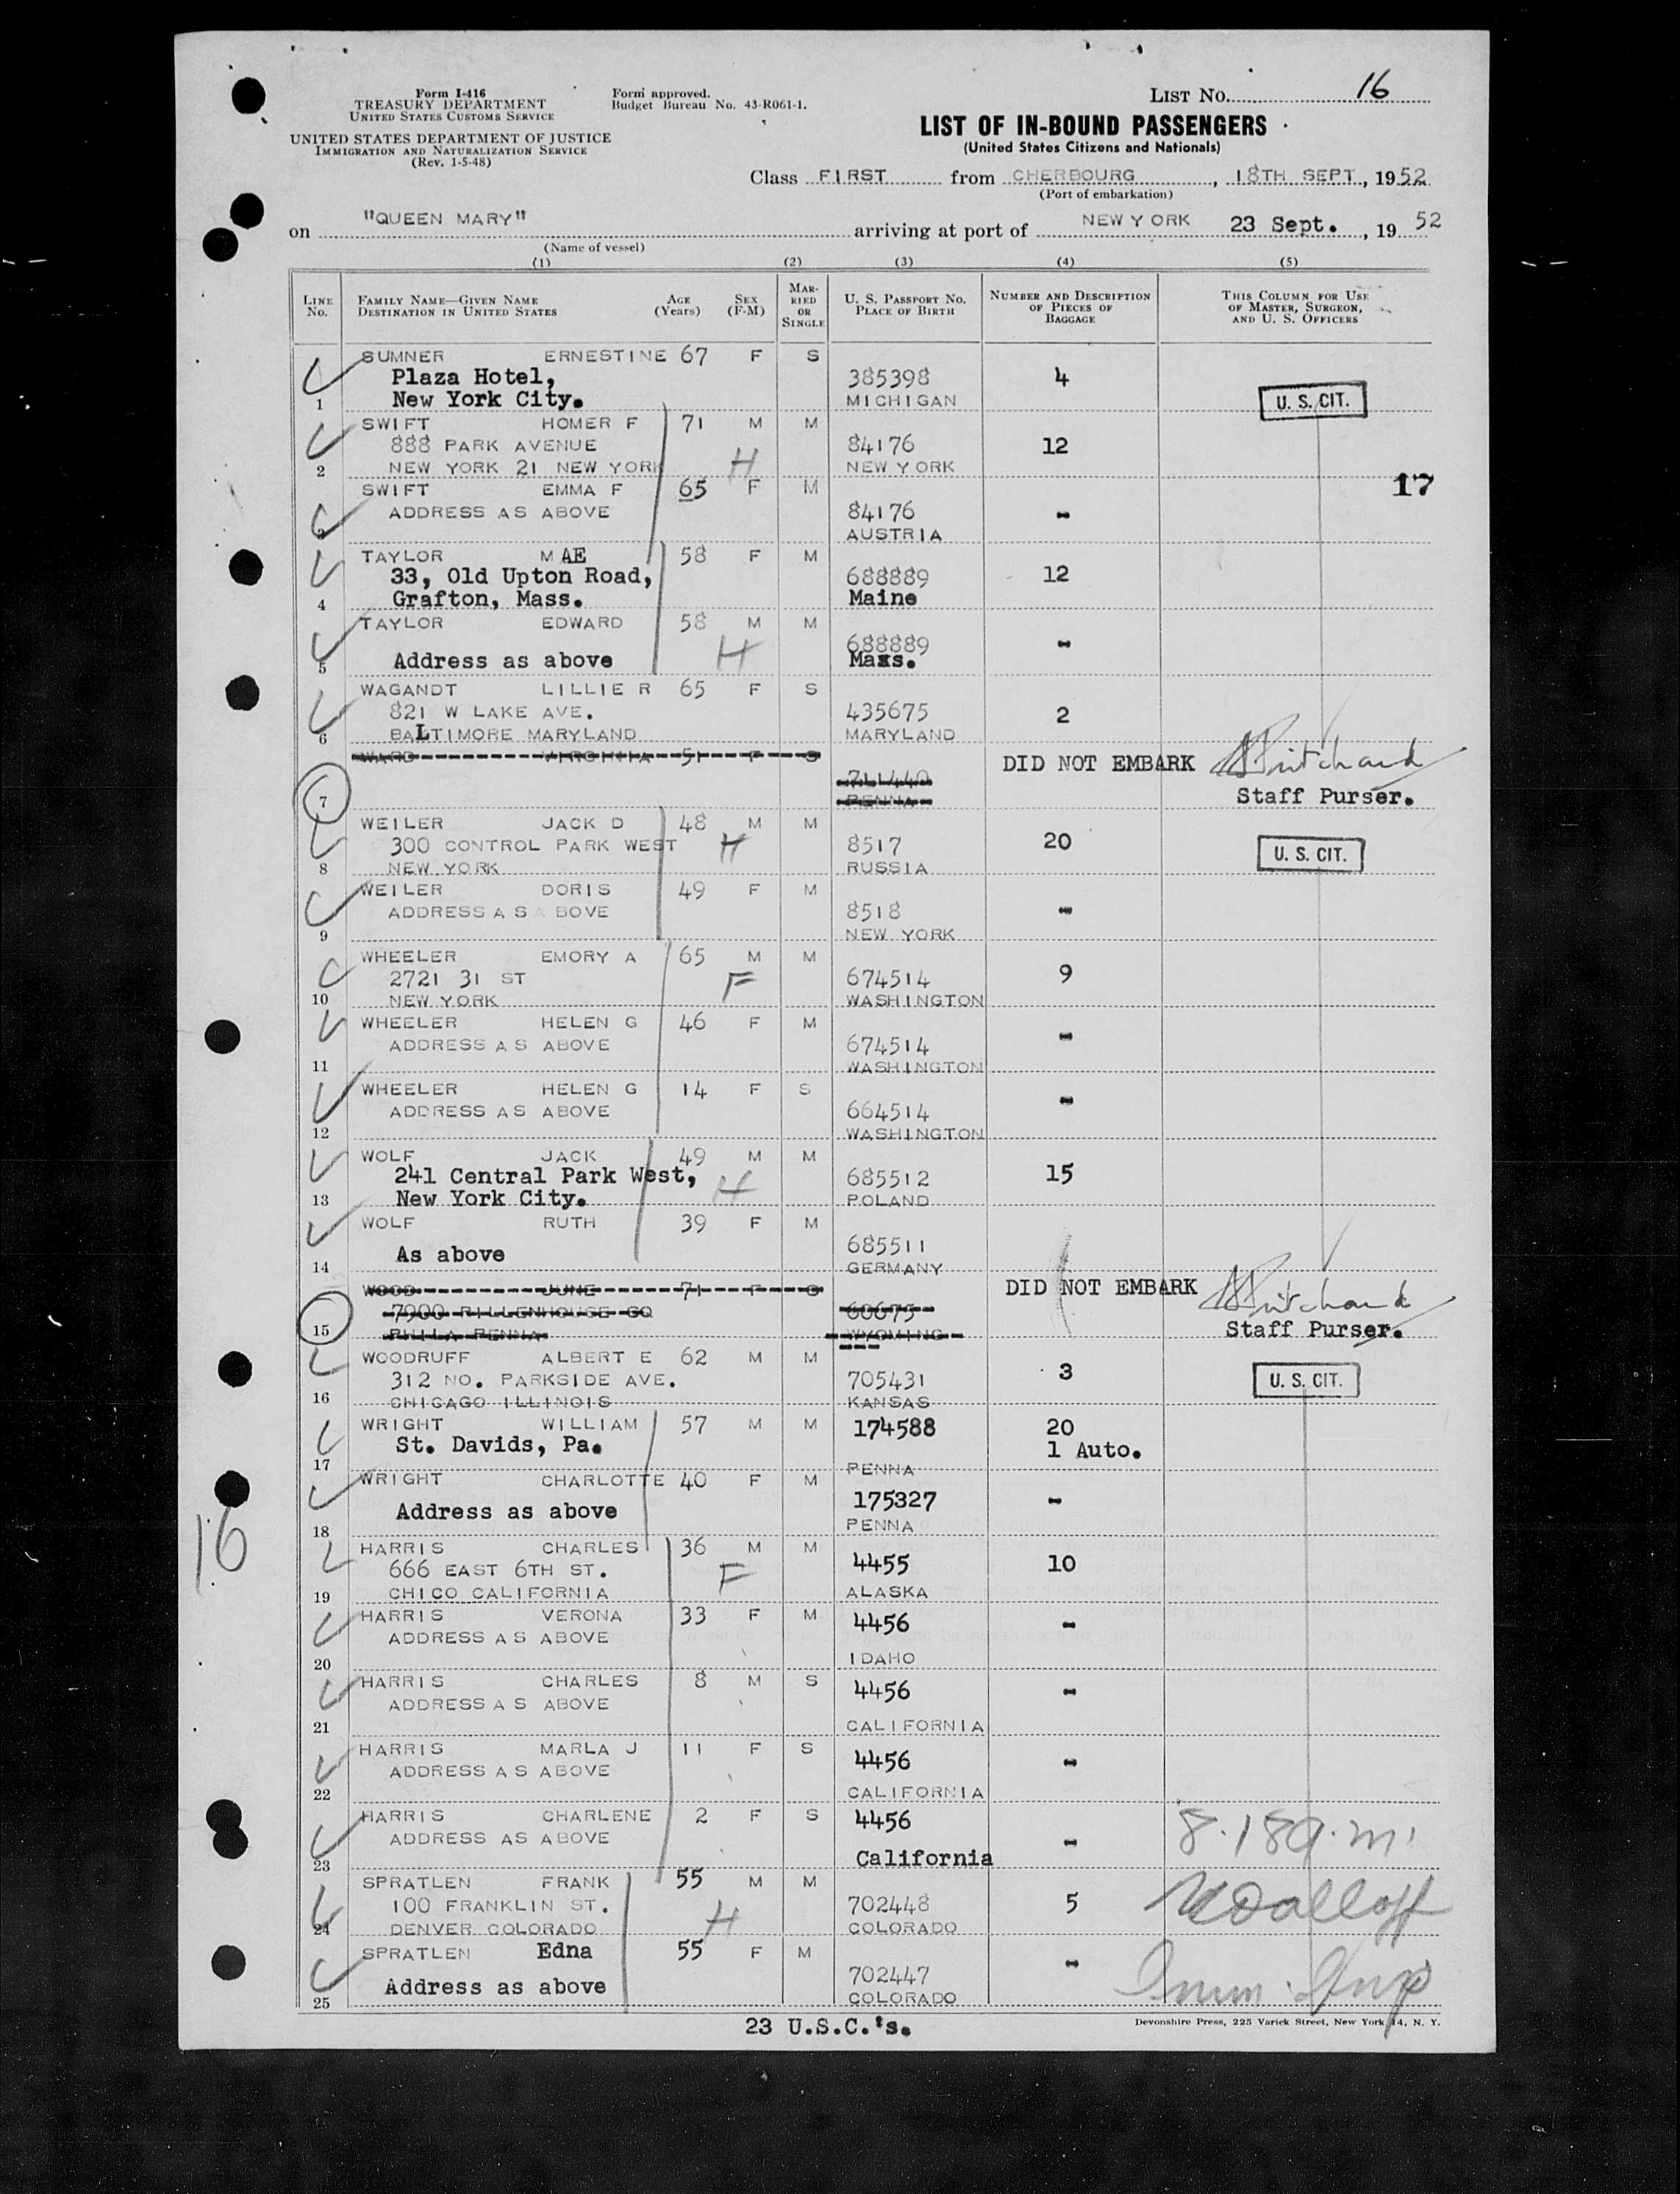 Form I-416
TREASURY DEPARTMENT
UNITED STATES CUSTOMS SERVICE
UNITED STATES DEPARTMENT OF JUSTICE
IMMIGRATION AND NATURALIZATION SERVICE
(Rev. 1-5-48)
Form approved.
Budget Bureau No. 43-R061-1.
LIST NO. 16
LIST OF IN-BOUND PASSENGERS
(United States Citizens and Nationals)
Class FIRST from CHERBOURG, 18TH SEPT, 1952
(Port of embarkation)
on "QUEEN MARY" arriving at port of NEW YORK 23 Sept., 1952
(Name of vessel)
(1) (2) (3) (4) (5)
LINE NO. FAMILY NAME—GIVEN NAME DESTINATION IN UNITED STATES AGE (Years) SEX (F-M) MARRIED OR SINGLE U. S. PASSPORT NO. PLACE OF BIRTH NUMBER AND DESCRIPTION OF PIECES OF BAGGAGE THIS COLUMN FOR USE OF MASTER, SURGEON, AND U. S. OFFICERS
SUMNER ERNESTINE 67 F S
Plaza Hotel, 385398 4
1 New York City. MICHIGAN U. S. CIT.
SWIFT HOMER F 71 M M
888 PARK AVENUE 84176 12
2 NEW YORK 21 NEW YORK H NEW YORK
17
SWIFT EMMA F 65 F M
ADDRESS AS ABOVE 84176 -
3 AUSTRIA
TAYLOR MAE 58 F M
33, Old Upton Road, 688889 12
4 Grafton, Mass. Maine
TAYLOR EDWARD 58 M M
H 688889 -
5 Address as above Mass.
WAGANDT LILLIE R 65 F S
821 W LAKE AVE. 435675 2
6 BALTIMORE MARYLAND MARYLAND
WARD VIRGINIA 51 F S
DID NOT EMBARK Pritchard
711440
7 PENNA Staff Purser.
WEILER JACK D 48 M M
300 CONTROL PARK WEST H 8517 20
8 NEW YORK RUSSIA U. S. CIT.
WEILER DORIS 49 F M
ADDRESS AS ABOVE 8518 -
9 NEW YORK
WHEELER EMORY A 65 M M
2721 31 ST F 674514 9
10 NEW YORK WASHINGTON
WHEELER HELEN G 46 F M
ADDRESS AS ABOVE 674514 -
11 WASHINGTON
WHEELER HELEN G 14 F S
ADDRESS AS ABOVE 664514 -
12 WASHINGTON
WOLF JACK 49 M M
241 Central Park West, H 685512 15
13 New York City. POLAND
WOLF RUTH 39 F M
As above 685511
14 GERMANY
WOOD JUNE 71 F S DID NOT EMBARK Pritchard
7900 RILLENHOUSE SQ 60675
15 PHILA PENNA WYOMING Staff Purser.
WOODRUFF ALBERT E 62 M M
312 NO. PARKSIDE AVE. 705431 3 U. S. CIT.
16 CHICAGO ILLINOIS KANSAS
WRIGHT WILLIAM 57 M M 174588 20
St. Davids, Pa. 1 Auto.
17 PENNA
WRIGHT CHARLOTTE 40 F M
Address as above 175327 -
18 PENNA
16
HARRIS CHARLES 36 M M
666 EAST 6TH ST. F 4455 10
19 CHICO CALIFORNIA ALASKA
HARRIS VERONA 33 F M 4456 -
ADDRESS AS ABOVE
20 IDAHO
HARRIS CHARLES 8 M S 4456 -
ADDRESS AS ABOVE
21 CALIFORNIA
HARRIS MARLA J 11 F S 4456 -
ADDRESS AS ABOVE
22 CALIFORNIA
HARRIS CHARLENE 2 F S 4456
ADDRESS AS ABOVE - 8.18a.m.
23 California
SPRATLEN FRANK 55 M M
100 FRANKLIN ST. 702448 5
24 DENVER COLORADO H COLORADO
SPRATLEN Edna 55 F M
Address as above 702447 - Imm. Insp
25 COLORADO
23 U.S.C.'s.
Devonshire Press, 225 Varick Street, New York 14, N. Y.